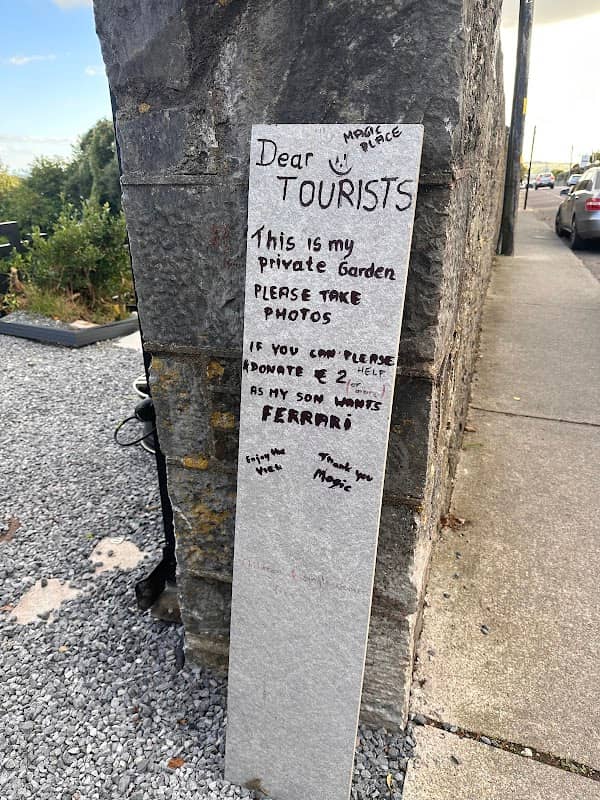 MAGIC
PLACE
Dear
TOURISTS
This is my
private Garden
PLEASE TAKE
PHOTOS
IF YOU CAN PLEASE
HELP
DONATE € 2 (or more)
AS MY SON WANTS
FERRARi
Enjoy the
View
Thank you
Magic